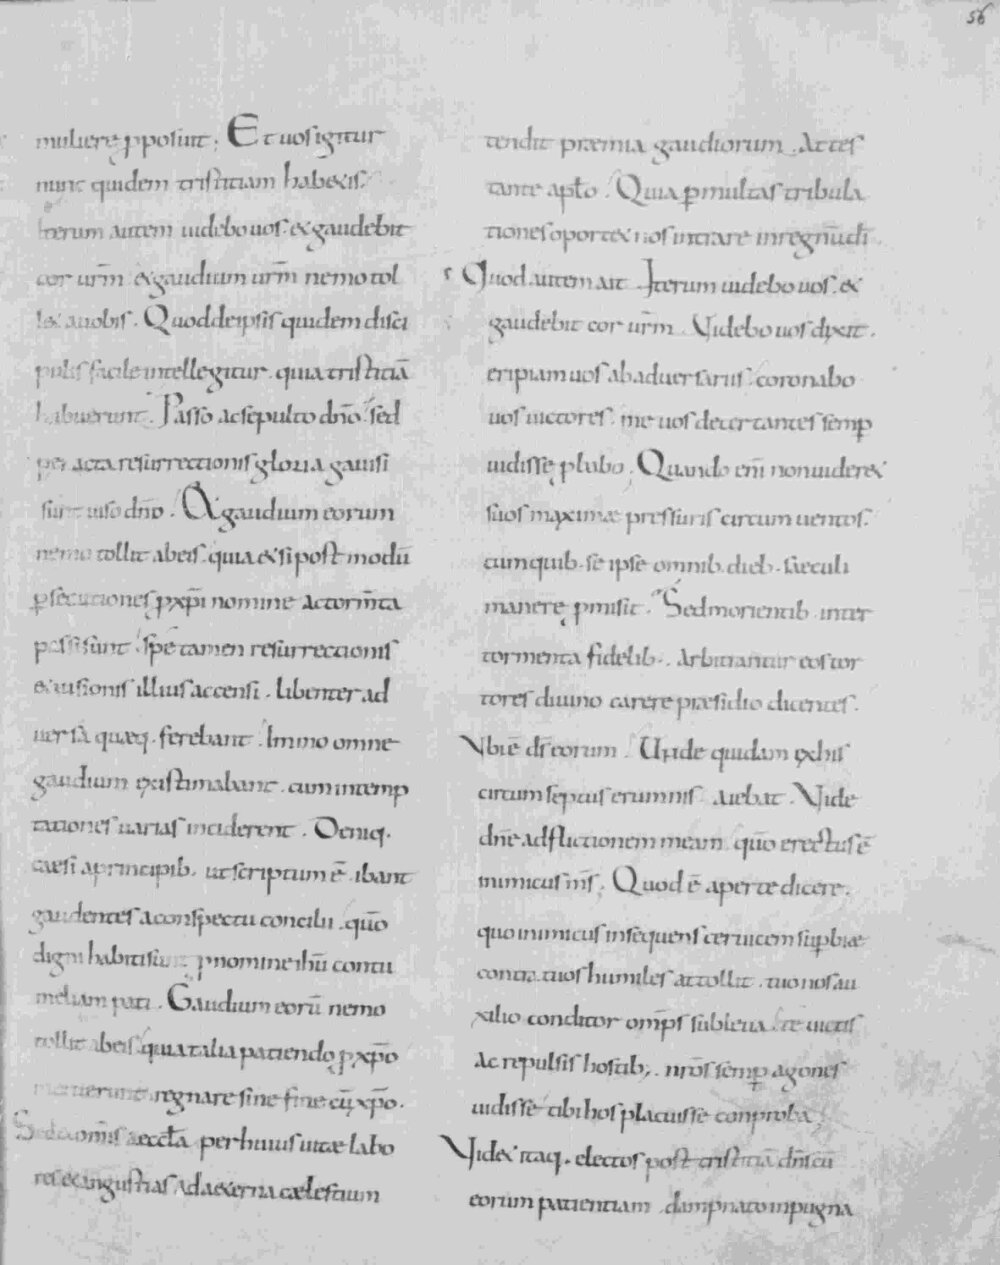 56
muliere pposuit; Et uos igitur
nunc quidem tristitiam habetis.
Iterum autem uidebo uos. et gaudebit
cor urm̄ et gaudium urm̄ nemo tol
let a uobis. Quod de ipsis quidem disci
pulis facile intellegitur. quia tristitiā
habuerunt. Passo ac sepulto dn̄o. sed
peracta resurrectionis gloria gauisi
sunt uiso dn̄o. Et gaudium eorum
nemo tollit ab eis. quia etsi postmodū
ꝑsecutiones ꝓ xp̄i nomine ac torm̄ta
passi sunt. spe tamen resurrectionis
et uisionis illius accensi. libenter ad
uersa quæq. ferebant. Immo omne
gaudium existimabant. cum in temp
tationes uarias inciderent. Deniq.
caesi a principib. ut scriptum ē. ibant
gaudentes a conspectu concilii. quō
digni habiti sunt ꝓ nomine ihū contu
meliam pati. Gaudium eorū nemo
tollit ab eis. quia talia patiendo ꝓ xp̄o
meruerunt regnare sine fine cū xp̄o.
Sed et omīs aeccl̄a per huius uitae labo
res et angustias ad aeterna caelestium
tendit præmia gaudiorum. Attes
tante apl̄o. Quia ꝑ multas tribula
tiones oportet nos intrare in regnū dī.
Quod autem ait Iterum uidebo uos. et
gaudebit cor urm̄. Videbo uos dixit.
eripiam uos ab aduersariis. coronabo
uos uictores. me uos decertantes semꝑ
uidisse ꝓbabo. Quando enī non uideret
suos maximæ pressuris circumuentos.
cum quib. se ipse omnib. dieb. saeculi
manere ꝓmisit. Sed morientib. inter
tormenta fidelib. Arbitrantur eos tor
tores diuino carere præsidio dicentes.
Vbi ē ds̄ eorum. Unde quidam ex his
circumseptus erumnis aiebat. Vide
dn̄e adflictionem meam. quō erectus ē
inimicus ms̄. Quod ē aperte dicere.
quo inimicus insequens ceruicem suꝑbiæ
contra tuos humiles attollit. tuo nos au
xilio conditor omp̄s subleua. te uictis
ac repulsis hostib; nrōs semꝑ agones
uidisse tibi hos placuisse conproba
Videt itaq. electos post tristitiā dn̄s cū
eorum patientiam. dampnato inpugna